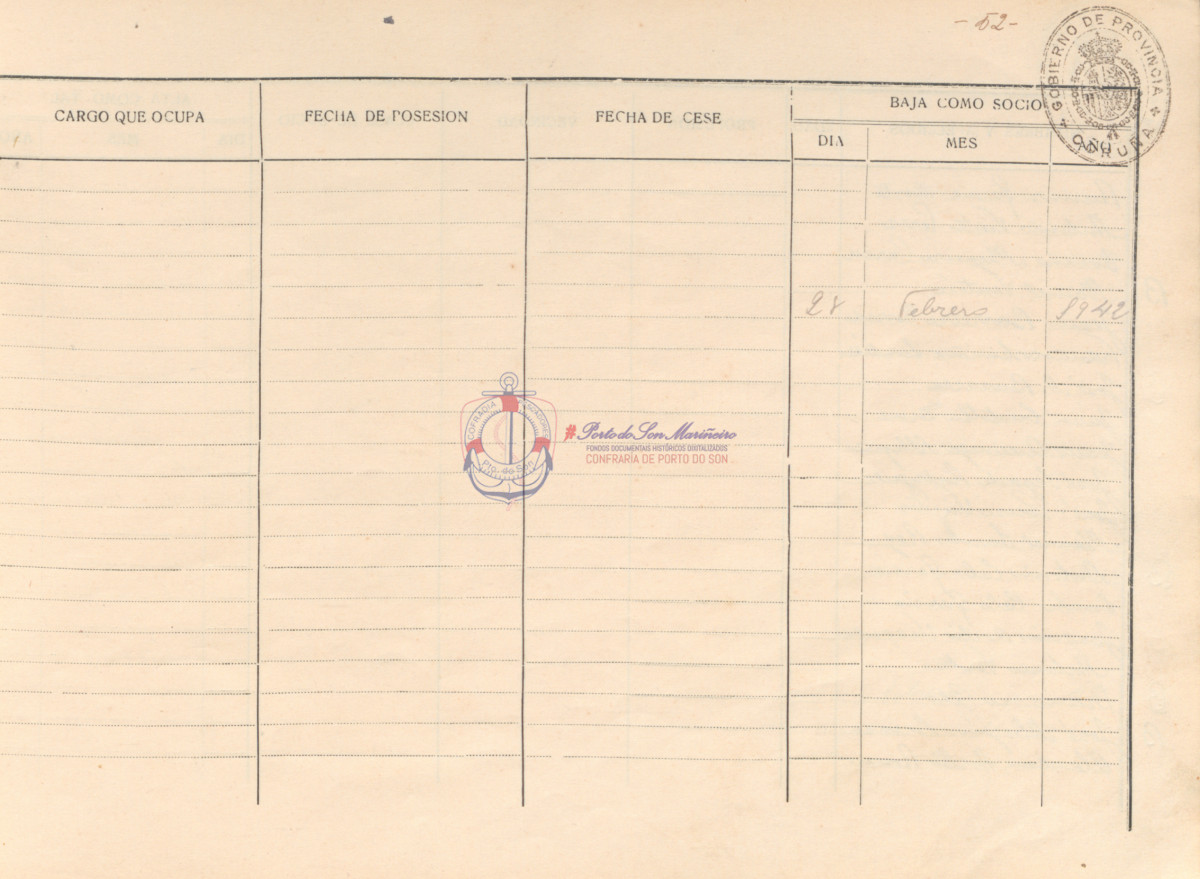 - 52 -
GOBIERNO DE PROVINCIA
* CORUÑA *
CARGO QUE OCUPA
FECHA DE POSESION
FECHA DE CESE
BAJA COMO SOCIO
DIA
MES
AÑO
28 Febrero 1942
COFRADIA PESCADORES
Pto. do Son
#Porto do Son Mariñeiro
FONDOS DOCUMENTAIS HISTÓRICOS DIGITALIZADOS
CONFRARÍA DE PORTO DO SON